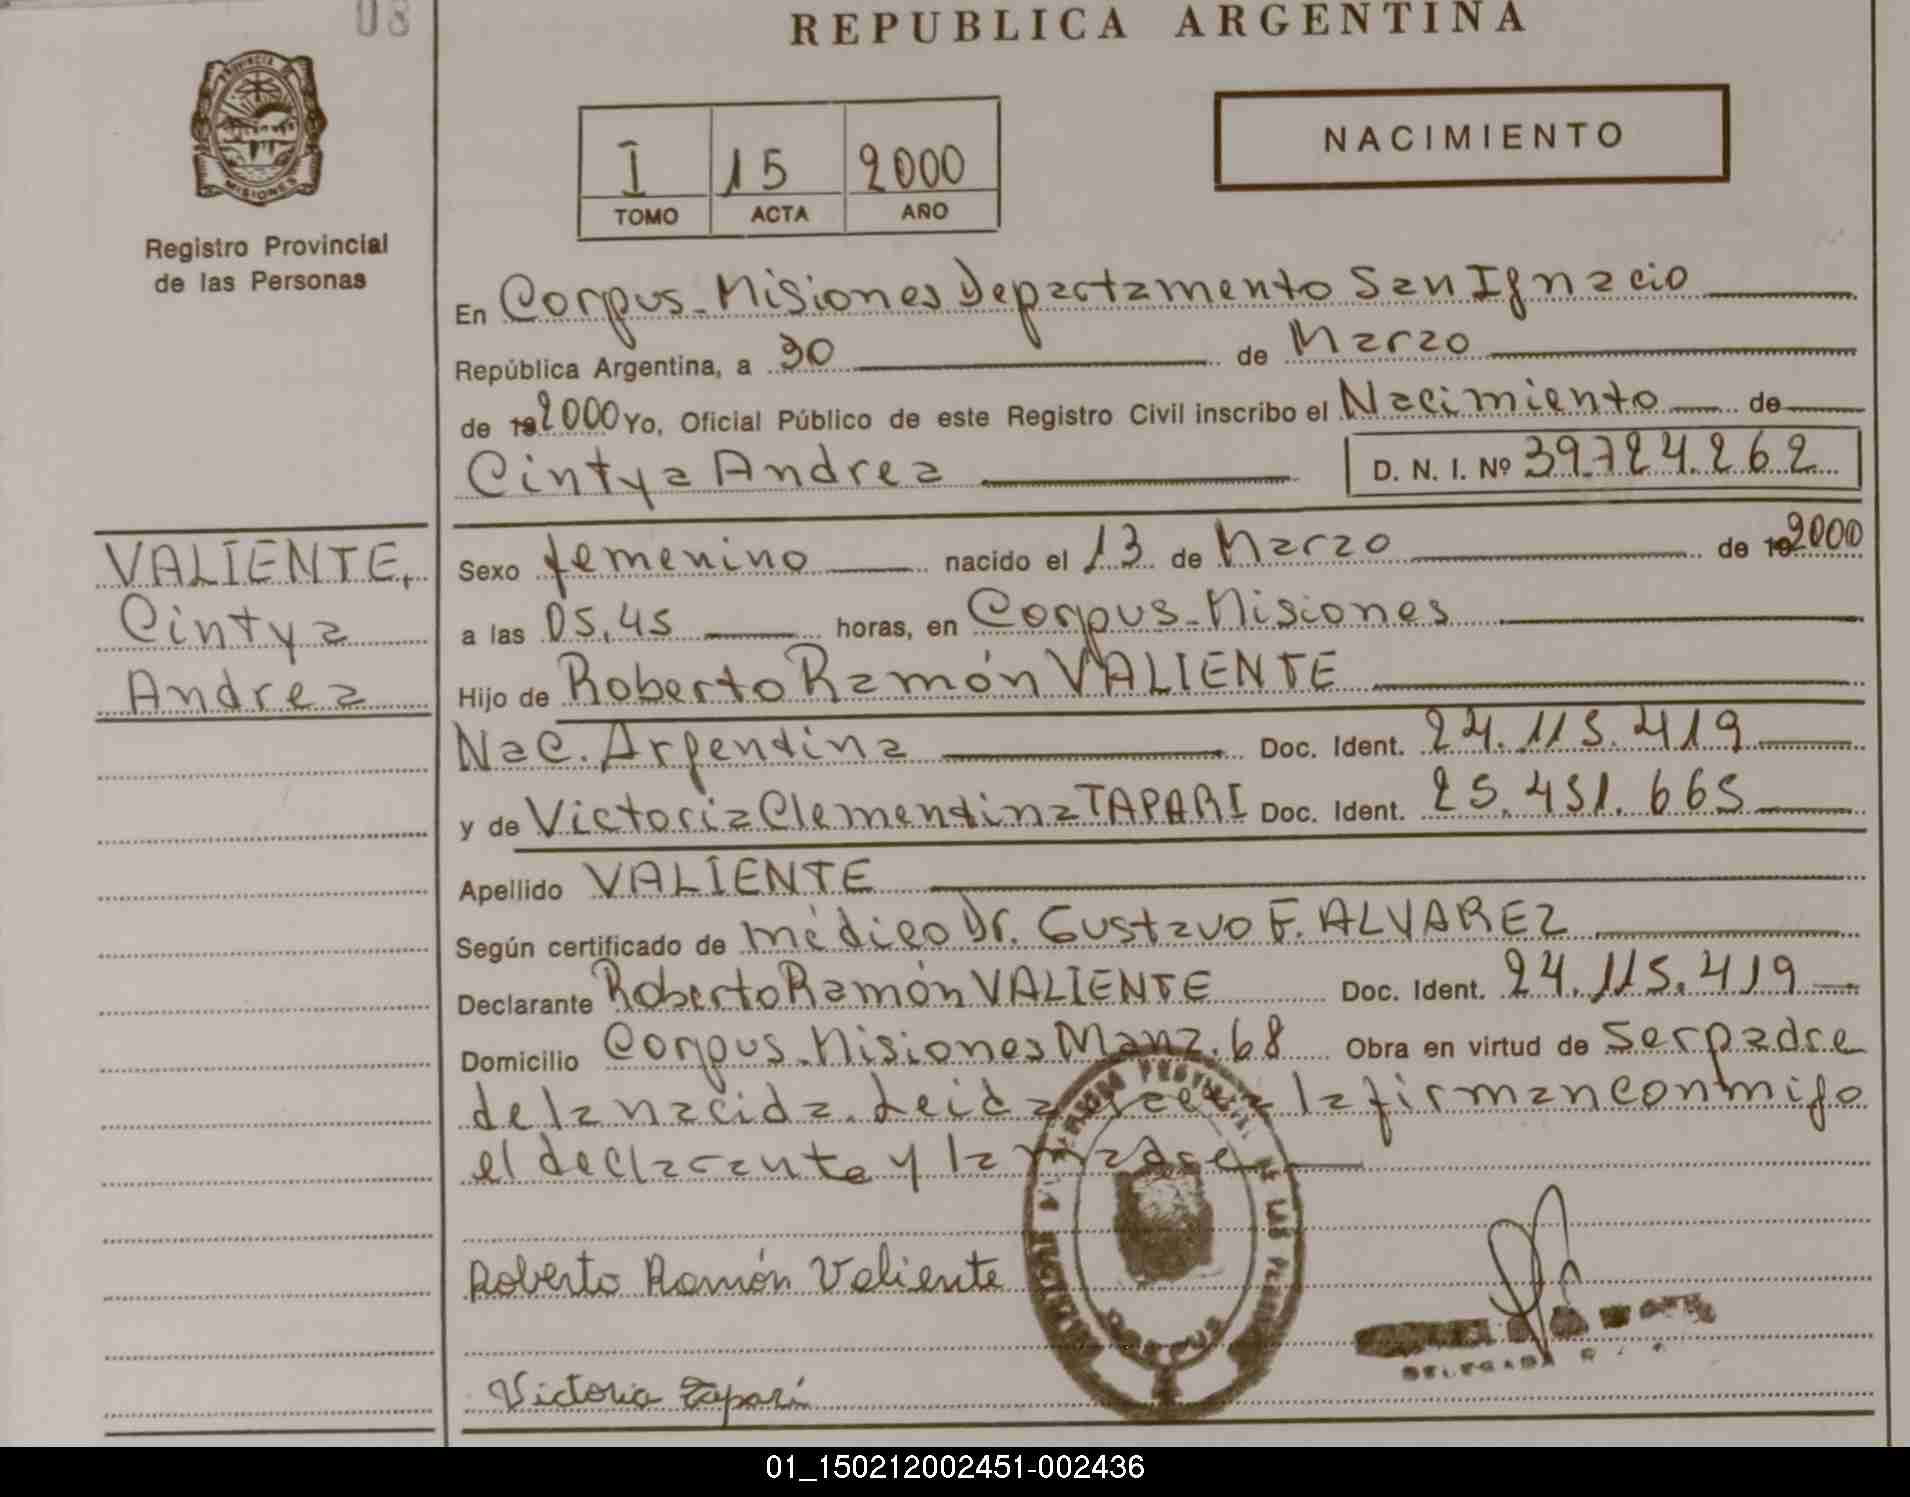 08
REPUBLICA ARGENTINA
PROVINCIA DE
MISIONES
Registro Provincial
de las Personas
I 15 2000
TOMO ACTA AÑO
NACIMIENTO
En Corpus-Misiones Departamento San Ignacio
República Argentina, a 30 de Marzo
de 192000 Yo, Oficial Público de este Registro Civil inscribo el Nacimiento de
Cintya Andrea D. N. I. Nº 39.724.262
VALIENTE,
Cintya
Andrea
Sexo femenino nacido el 13 de Marzo de 192000
a las 05,45 horas, en Corpus-Misiones
Hijo de Roberto Ramón VALIENTE
Nac. Argentina Doc. Ident. 24.115.419
y de Victoria Clementina TAPARI Doc. Ident. 25.451.665
Apellido VALIENTE
Según certificado de médico Dr. Gustavo F. ALVAREZ
Declarante Roberto Ramón VALIENTE Doc. Ident. 24.115.419
Domicilio Corpus-Misiones Manz. 68 Obra en virtud de Ser padre
de la nacida. Leida el acta la firman conmigo
el declarante y la madre
Roberto Ramón Valiente
Victoria Taparí
DELEGADA
01_150212002451-002436